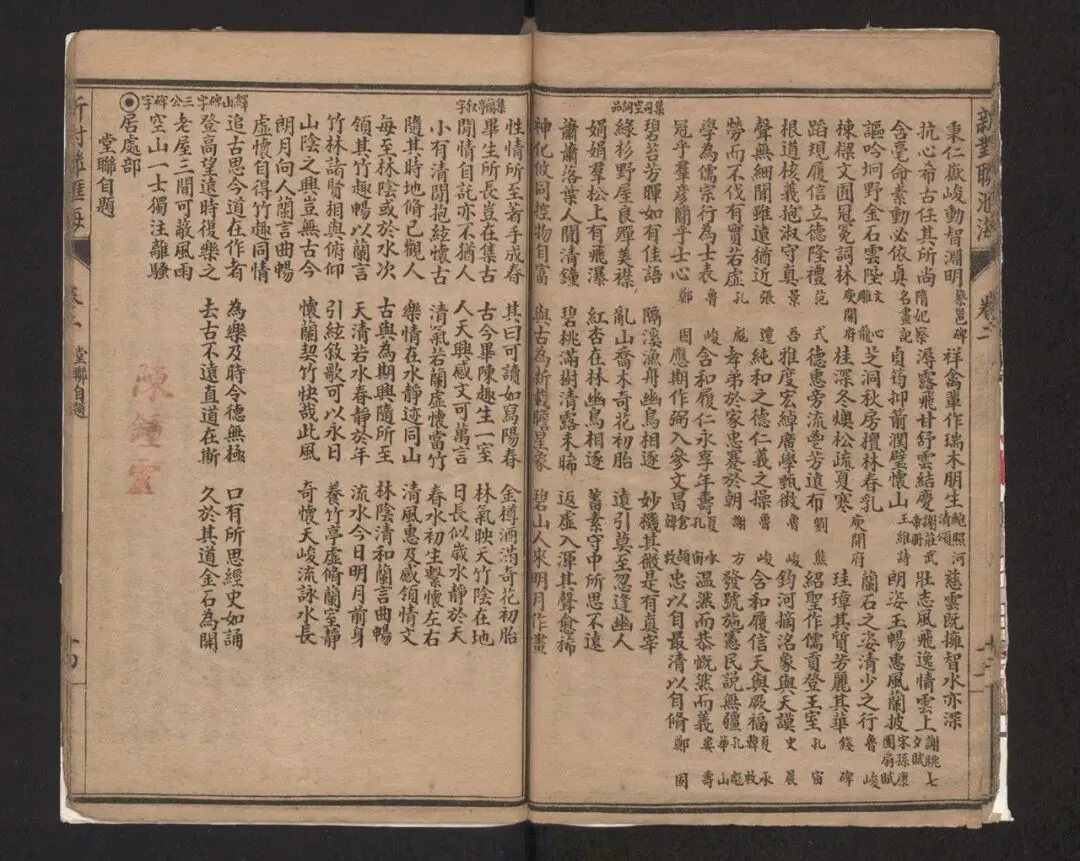 新對聯滙海
卷二
秉仁嶽峻動智淵明 蔡邕碑 祥禽輩作瑞木朋生 鮑照河清頌 慈雲既擁智水亦深
抗心希古任其所尚 隋妃祭 潯露飛甘舒雲結慶 謝莊武帝冊 壯志風飛逸情雲上 謝眺七夕賦
含毫命素動必依真 名畫記 貞筠抑箭潤璧懷山 王維詩 朗姿玉暢惠風蘭披 宋孫康團扇賦
謳吟坰野金石雲陛 文心雕龍 芝洞秋房檀林春乳 蘭石之姿清少之行 魯峻
棟樑文囿冠冕詞林 庾開府 桂深冬燠松疏夏寒 庾開府 珪璋其質芳麗其華 錢碑
蹈規履信立德隆禮 范式 德惠旁流芳遠布 劉熊 紹聖作儒貢登王室 孔宙
根道核義抱淑守真 景吾 雅度宏綽廣學甄微 魯峻 鈞河摘洛象與天謨 史晨
聲無細聞雖遠猶近 張遷 純和之德仁義之操 魯峻 含和履信天與厥福 夏承
勞而不伐有實若虛 孔彪 孝弟於家忠謇於朝 謝方 發號施憲民說無疆 孔彪 華山
學為儒宗行為士表 魯峻 含和履仁永享年壽 夏承 孔宙 溫然而恭慨然而義 婁壽
冠乎羣彥簡乎士心 鄭固 應期作弼入參文昌 忠以自勖清以自脩 鄭固
集司空詞品
碧苔芳暉如有佳語 隔溪漁舟幽鳥相逐 妙機其微是有真宰
綠杉野屋良殫美襟 亂山喬木奇花初胎 遠引莫至忽逢幽人
娟娟羣松上有飛瀑 紅杏在林幽鳥相逐 蓄素守中所思不遠
蕭蕭落葉人聞清鐘 碧桃滿樹清露未晞 返虛入渾其聲愈稀
神化攸同控物自富 與古為新載瞻星象 碧山人來明月作畫
集稧亭叙字
性情所至著手成春 其曰可讀如寫陽春 金樽酒滿奇花初胎
畢生所長豈在集古 古今畢陳趣生一至 林氣映天竹陰在地
閒情自託亦不猶人 人天興感文可萬言 日長似歲水靜於天
小有清閒抱絃懷古 清氣若蘭虛懷當竹 春水初生繫懷左右
隨其時地脩己觀人 樂情在水靜迹同山 清風惠及感領情文
每至林陰或於水次 古與為期興隨所至 林陰清和蘭言曲暢
領其竹趣暢以蘭言 天清若水春靜於年 流水今日明月前身
竹林諸賢相與俯仰 引絃敘歌可以永日 養竹亭虛脩蘭室靜
山陰之興豈無古今 懷蘭契竹快哉此風 奇懷天峻流詠水長
朗月向人蘭言曲暢
虛懷自得竹趣同情
繹山碑字 三公碑字
追古思今道在作者 為樂及時令德無極 口有所思經史如誦
登高望遠時復樂之 去古不遠直道在斯 久於其道金石為開
老屋三間可蔽風雨
空山一士獨注離騷
居處部
堂聯自題
陳鍾
新對聯滙海
卷二
堂聯自題
十四